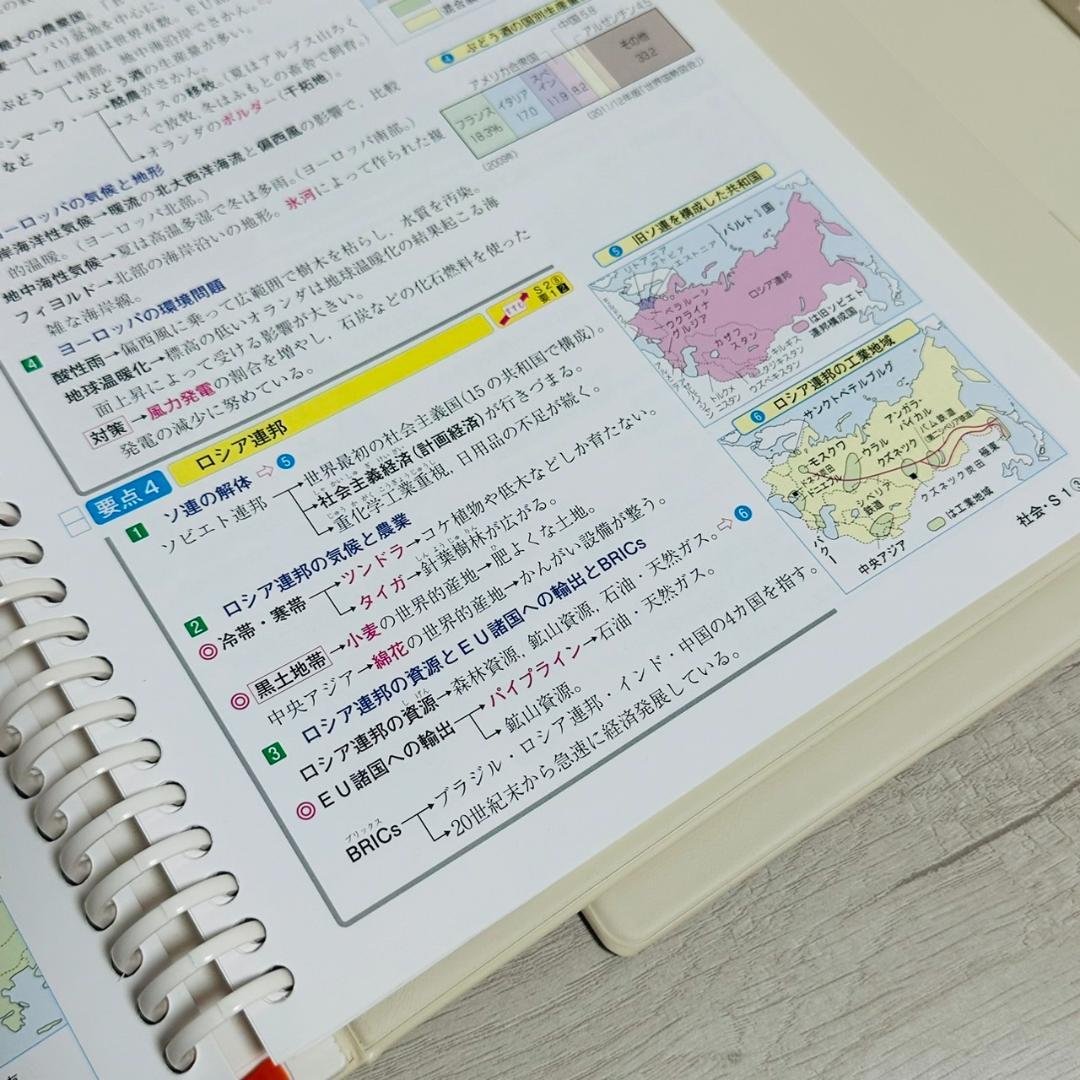 パリ盆地を中心に、
生産量は世界有数。
南部、地中海沿岸でさかん。
ぶどう
ぶどう酒の生産量が多い。
酪農がさかん。
スイスの移牧(夏はアルプス山ちく
で放牧、冬はふもとの畜舎で飼育。)
オランダのポルダー(干拓地)。
など
ヨーロッパの気候と地形
岸海洋性気候→暖流の北大西洋海流と偏西風の影響で、比較
的温暖。(ヨーロッパ北部。)
地中海性気候→夏は高温多湿で冬は多雨。(ヨーロッパ南部。)
フィヨルド→北部の海岸沿いの地形。氷河によって作られた複
雑な海岸線。
4 ヨーロッパの環境問題
酸性雨→偏西風に乗って広範囲で樹木を枯らし、水質を汚染。
地球温暖化→標高の低いオランダは地球温暖化の結果起こる海
面上昇によって受ける影響が大きい。
対策→風力発電の割合を増やし、石炭などの化石燃料を使った
発電の減少に努めている。
3 ぶどう酒の国別生産量
フランス 18.3%
イタリア 17.0
スペイン 11.9
アメリカ合衆国 8.2
中国
アルゼンチン 4.5
その他 33.2
(2009年)
(2011/12年版「世界国勢図会」)
要点4 ロシア連邦
1 ソ連の解体⇨5
ソビエト連邦→世界最初の社会主義国(15の共和国で構成)。
→社会主義経済(計画経済)が行きづまる。
→重化学工業重視、日用品の不足が続く。
2 ロシア連邦の気候と農業
◎冷帯・寒帯→ツンドラ→コケ植物や低木などしか育たない。
→タイガ→針葉樹林が広がる。
◎黒土地帯→小麦の世界的産地→肥よくな土地。
中央アジア→綿花の世界的産地→かんがい設備が整う。
3 ロシア連邦の資源とEU諸国への輸出とBRICs
ロシア連邦の資源→森林資源、鉱山資源、石油・天然ガス。⇨6
◎EU諸国への輸出→パイプライン→石油・天然ガス。
→鉱山資源。
ブリックス
BRICs→ブラジル・ロシア連邦・インド・中国の4カ国を指す。
→20世紀末から急速に経済発展している。
5 旧ソ連を構成した共和国
バルト3国
エストニア
ロシア連邦
ベラルーシ
ウクライナ
グルジア
カザフスタン
キルギス
タジキスタン
ウズベキスタン
トルクメニスタン
は旧ソビエト
連邦構成国
6 ロシア連邦の工業地域
サンクトペテルブルグ
モスクワ
ウラル
クズネック
アンガラ・
バイカル
バム鉄道
(第二シベリア鉄道)
シベリア
鉄道
クズネック炭田
極東
バクー
中央アジア
は工業地域
社会・S1